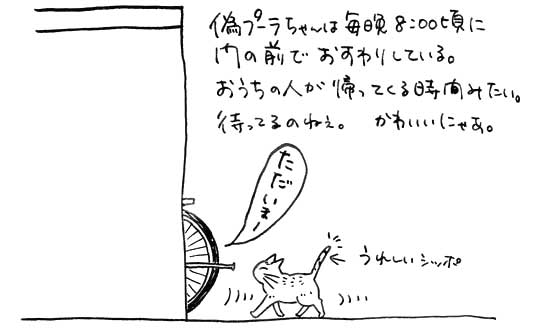 偽プーラちゃんは毎晩8:00頃に
門の前でおすわりしている。
おうちの人が帰ってくる時間みたい。
待ってるのねぇ。 かわいいにゃあ。
ただいまー
うれしいシッポ